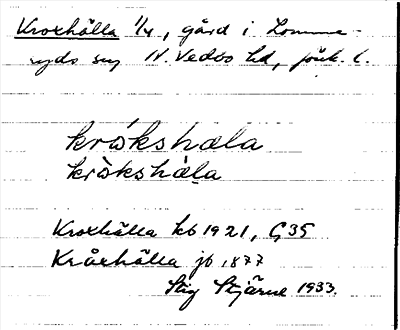 Kroxhälla 1/4, gård i Lomme-
ryds sn N. Vedbo hd, jönk. l.
krákshala
kràkshàla
Kroxhälla kb 1921, G35
Kråxhälla jb 1877
Stig Stjärne 1933